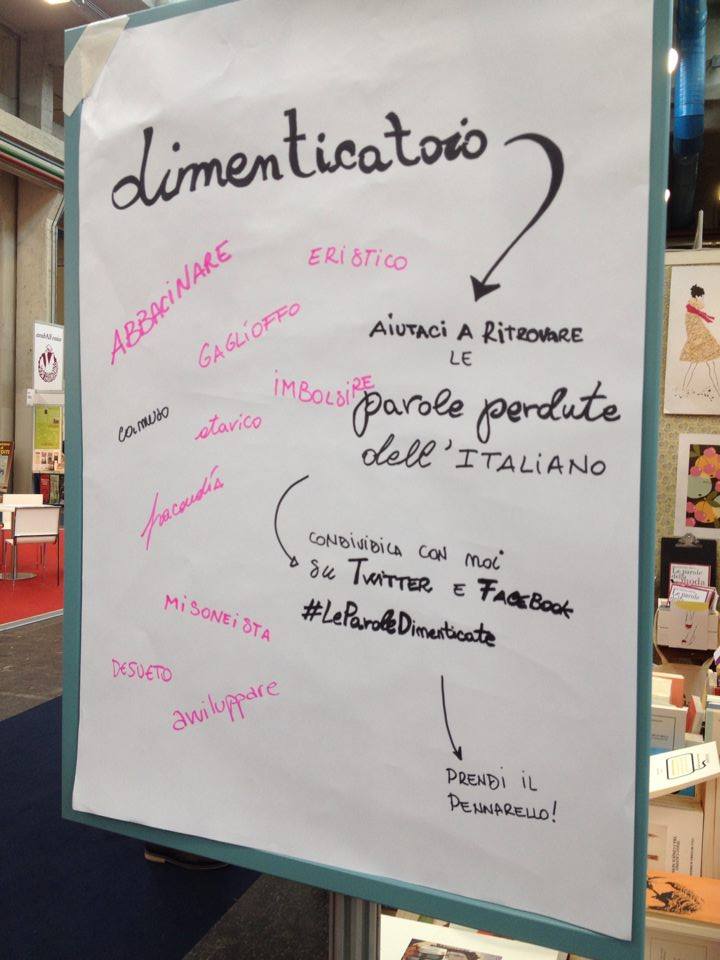 dimenticatoio
ABBACINARE
ERISTICO
GAGLIOFFO
AIUTACI A RITROVARE
LE
IMBOLSIRE
parole perdute
dell'ITALIANO
camuso
atavico
facondia
CONDIVIDILA CON NOI
SU TWITTER E FACEBOOK
#LeParoleDimenticate
MISONEISTA
DESUETO
avviluppare
PRENDI IL
PENNARELLO!
Le parole
della moda
Le parole